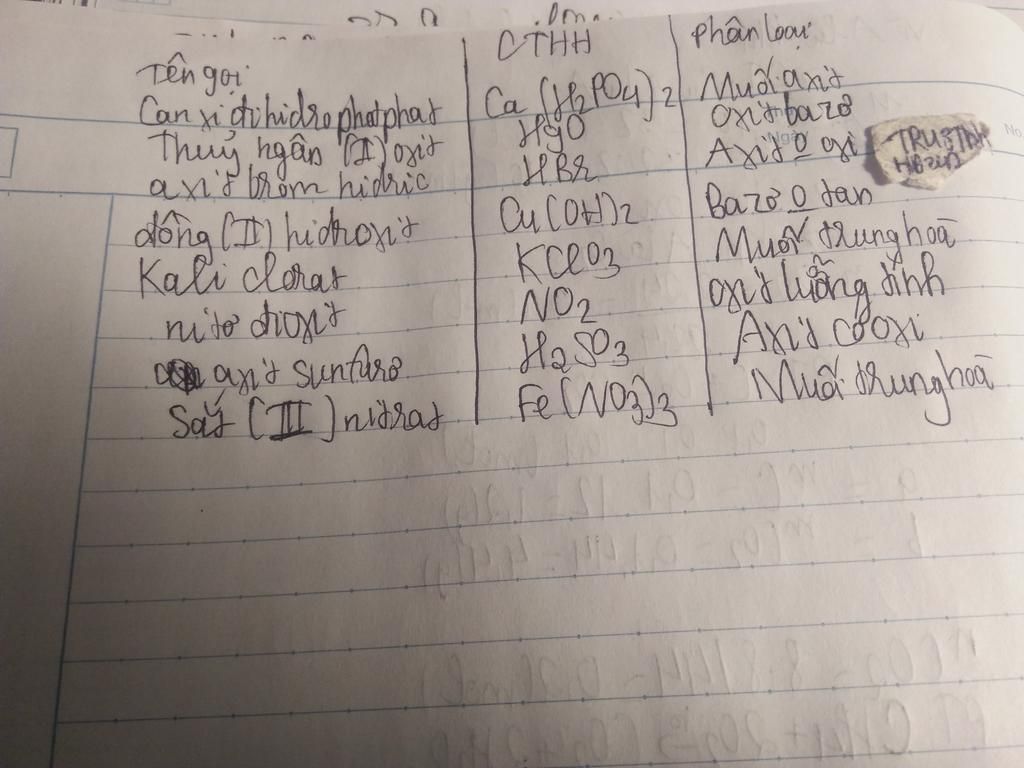 Tên gọi CTHH phân loại
Canxi đihiđro photphat Ca(H2PO4)2 Muối axit
Thuỷ ngân (I) oxit HgO oxit bazơ
axit brom hiđric HBr Axit 0 oxi
đồng (II) hiđroxit Cu(OH)2 Bazơ 0 tan
Kali clorat KClO3 Muối trung hoà
nitơ đioxit NO2 oxit lưỡng tính
axit sunfurơ H2SO3 Axit có oxi
Sắt (III) nitrat Fe(NO3)3 Muối trung hoà